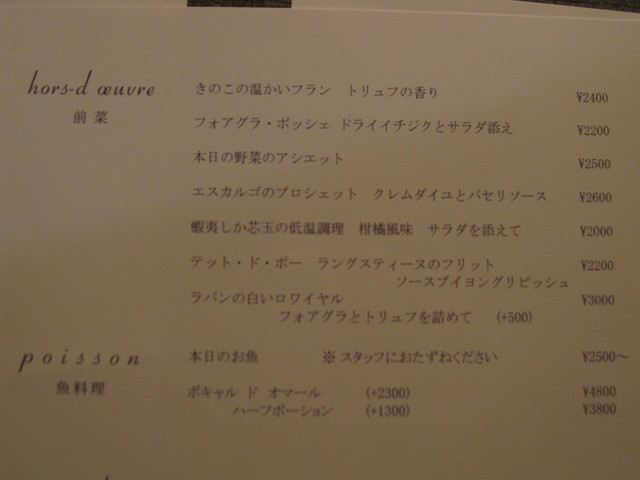 hors-d œuvre
前菜
きのこの温かいフラン トリュフの香り ¥2400
フォアグラ・ポッシェ ドライイチジクとサラダ添え ¥2200
本日の野菜のアシエット ¥2500
エスカルゴのブロシェット クレムダイユとパセリソース ¥2600
蝦夷しか芯玉の低温調理 柑橘風味 サラダを添えて ¥2000
テット・ド・ポー ラングスティーヌのフリット ¥2200
ソースブイヨングリビッシュ
ラパンの白いロワイヤル ¥3000
フォアグラとトリュフを詰めて (+500)
poisson
魚料理
本日のお魚 ※スタッフにおたずねください ¥2500〜
ボキャル ド オマール (+2300) ¥4800
ハーフポーション (+1300) ¥3800